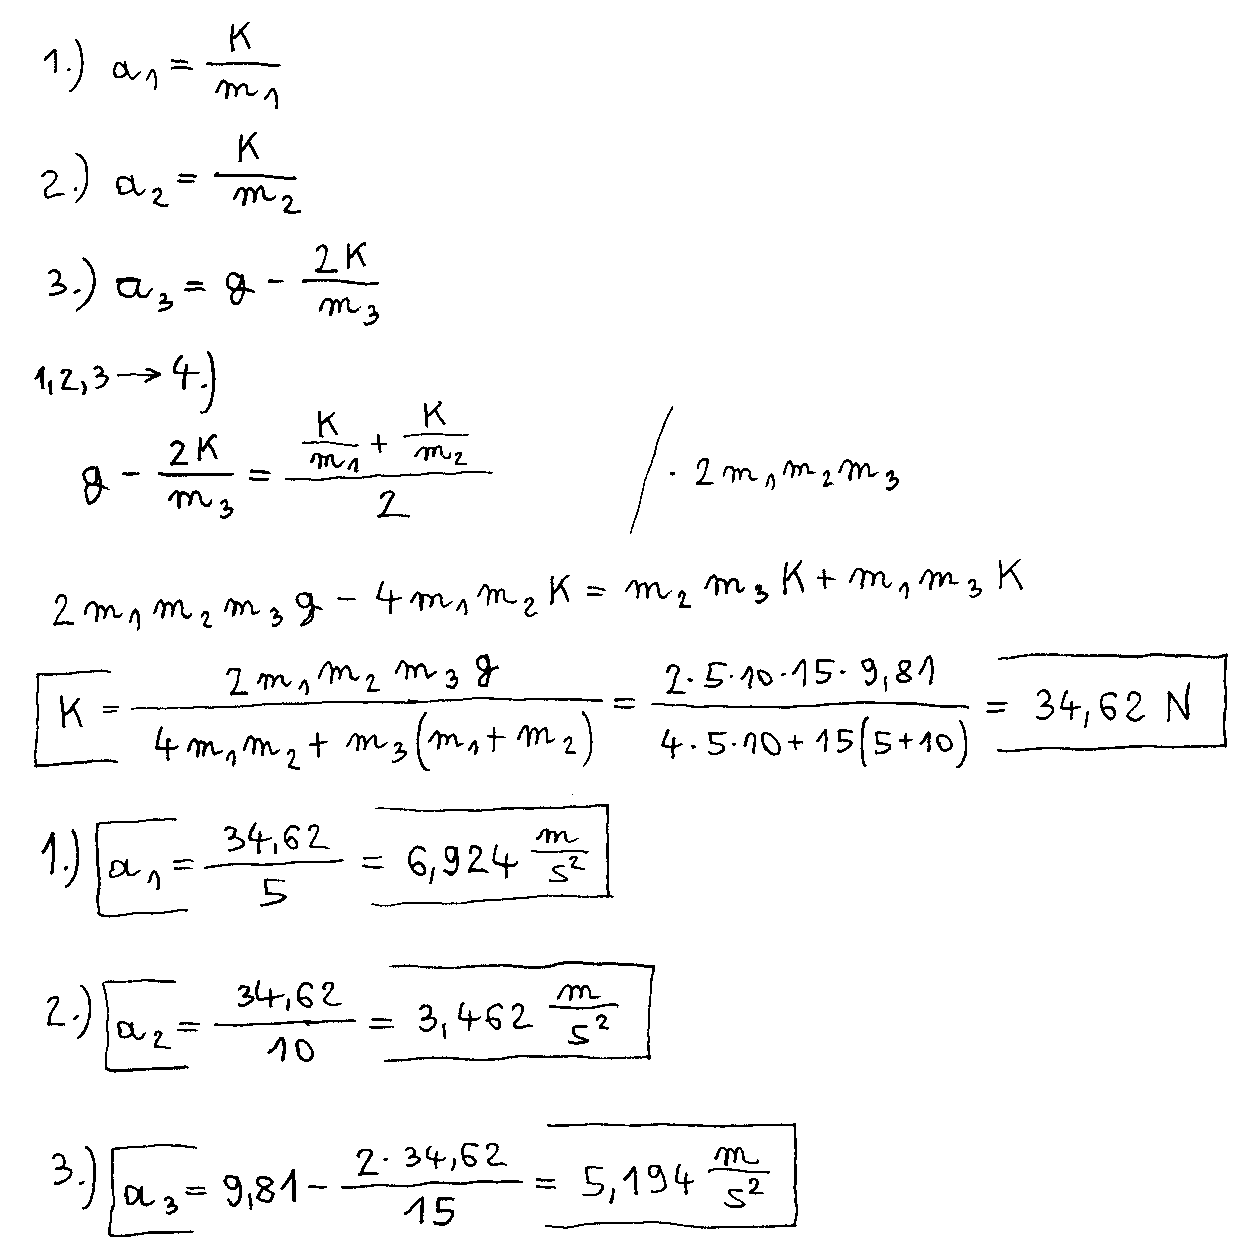 1.) a₁ = K/m₁
2.) a₂ = K/m₂
3.) a₃ = g - 2K/m₃
1,2,3 → 4.)
g - 2K/m₃ = (K/m₁ + K/m₂)/2 / · 2m₁m₂m₃
2m₁m₂m₃g - 4m₁m₂K = m₂m₃K + m₁m₃K
K = 2m₁m₂m₃g/(4m₁m₂ + m₃(m₁ + m₂)) = 2·5·10·15·9,81/(4·5·10 + 15(5+10)) = 34,62 N
1.) a₁ = 34,62/5 = 6,924 m/s²
2.) a₂ = 34,62/10 = 3,462 m/s²
3.) a₃ = 9,81 - 2·34,62/15 = 5,194 m/s²